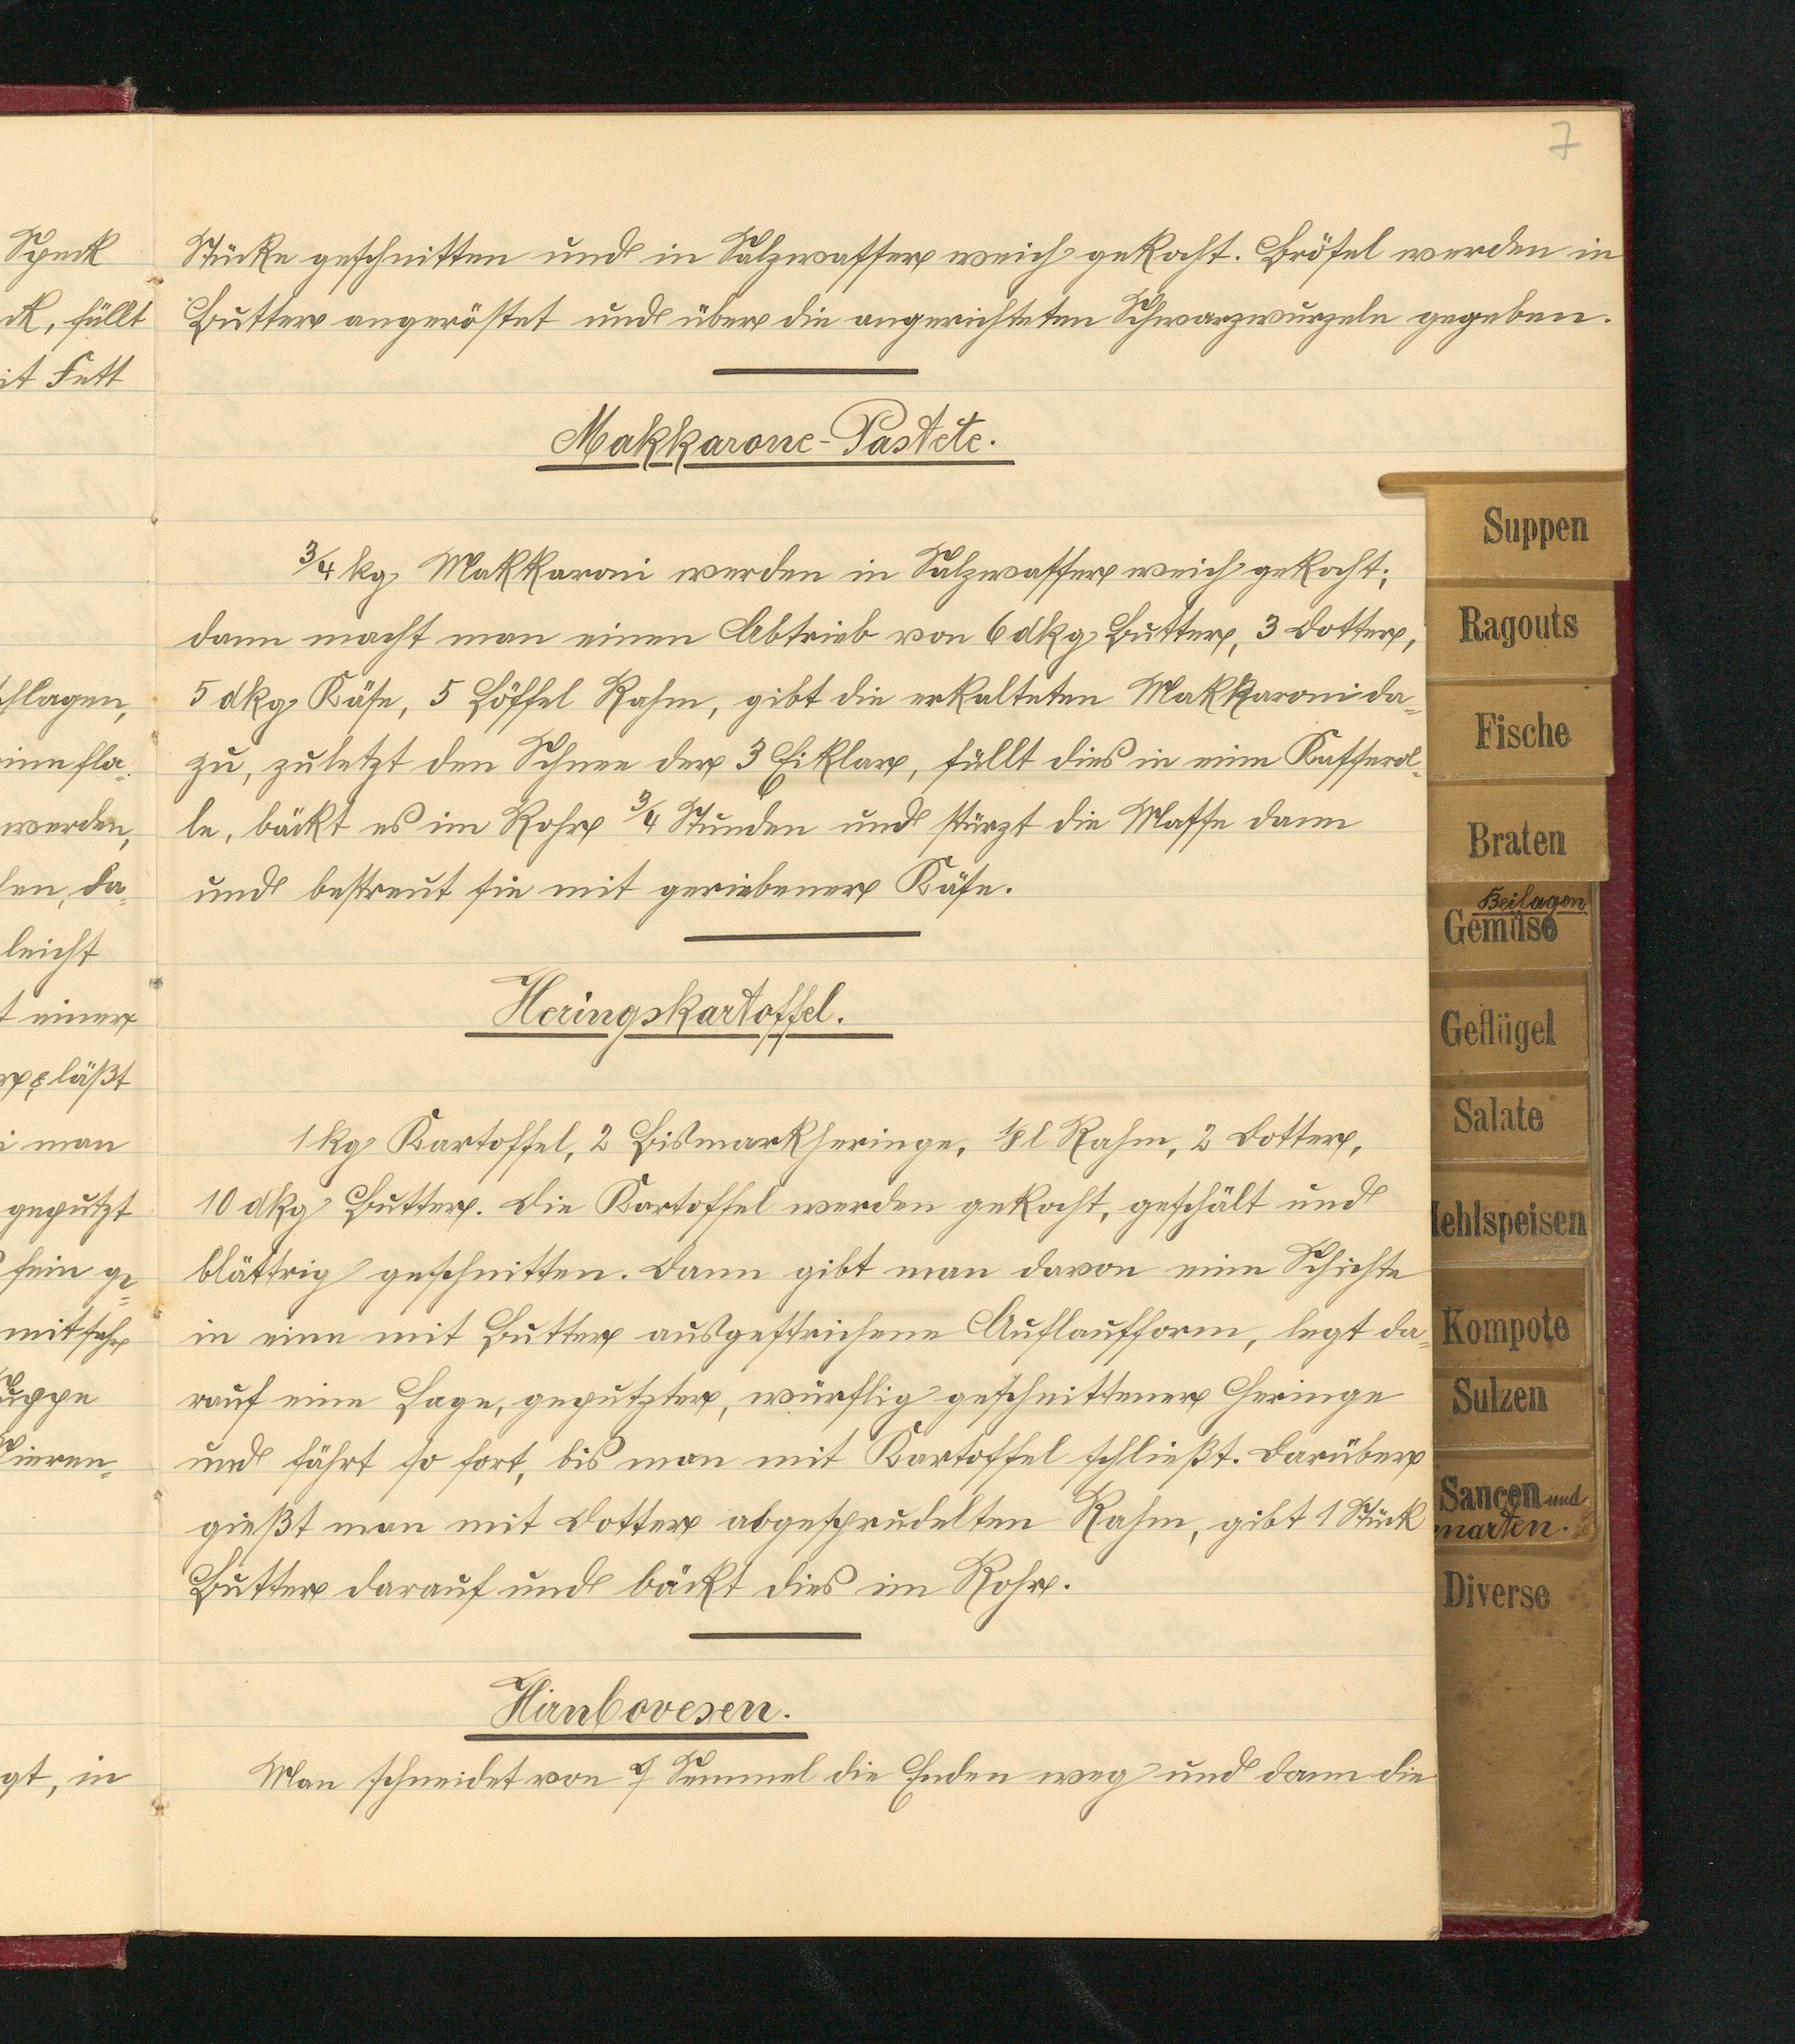 7
Speck
ck, füllt
it Fett
schlagen,
eine fla-
werden,
len, da-
leicht
t einer
er, & läßt
i man
geputzt
fein ge-
mit sehr
Suppe
Nieren-
gt, in
Stücke geschnitten und in Salzwasser weich gekocht. Brösel werden in
Butter angeröstet und über die angerichteten Schwarzwurzeln gegeben.
Makkarone-Pastete.
3/4 kg Makkaroni werden in Salzwasser weich gekocht;
dann macht man einen Abtrieb von 6 dkg Butter, 3 Dotter,
5 dkg Käse, 5 Löffel Rahm, gibt die erkalteten Makkaroni da-
zu, zuletzt den Schnee der 3 Eiklar, füllt dies in eine Kasserol-
le, bäckt es im Rohr 3/4 Stunden und stürzt die Masse dann
und bestreut sie mit geriebener Käse.
Heringskartoffel.
1 kg Kartoffel, 2 Bismarkheringe, 1/8 l Rahm, 2 Dotter,
10 dkg Butter. Die Kartoffel werden gekocht, geschält und
blättrig geschnitten. Dann gibt man davon eine Schichte
in eine mit Butter ausgestrichene Auflaufform, legt da-
rauf eine Lage, geputzter, würflig geschnittener Heringe
und fährt so fort, bis man mit Kartoffel schließt. Darüber
gießt man mit Dotter abgesprudelten Rahm, gibt 1 Stück
Butter darauf und bäckt dies im Rohr.
Hirnbovesen.
Man schneidet von 7 Semmel die Enden weg und dann die
Suppen
Ragouts
Fische
Braten
Beilagen
Gemüse
Geflügel
Salate
Mehlspeisen
Kompote
Sulzen
Saucen und
marten.
Diverse